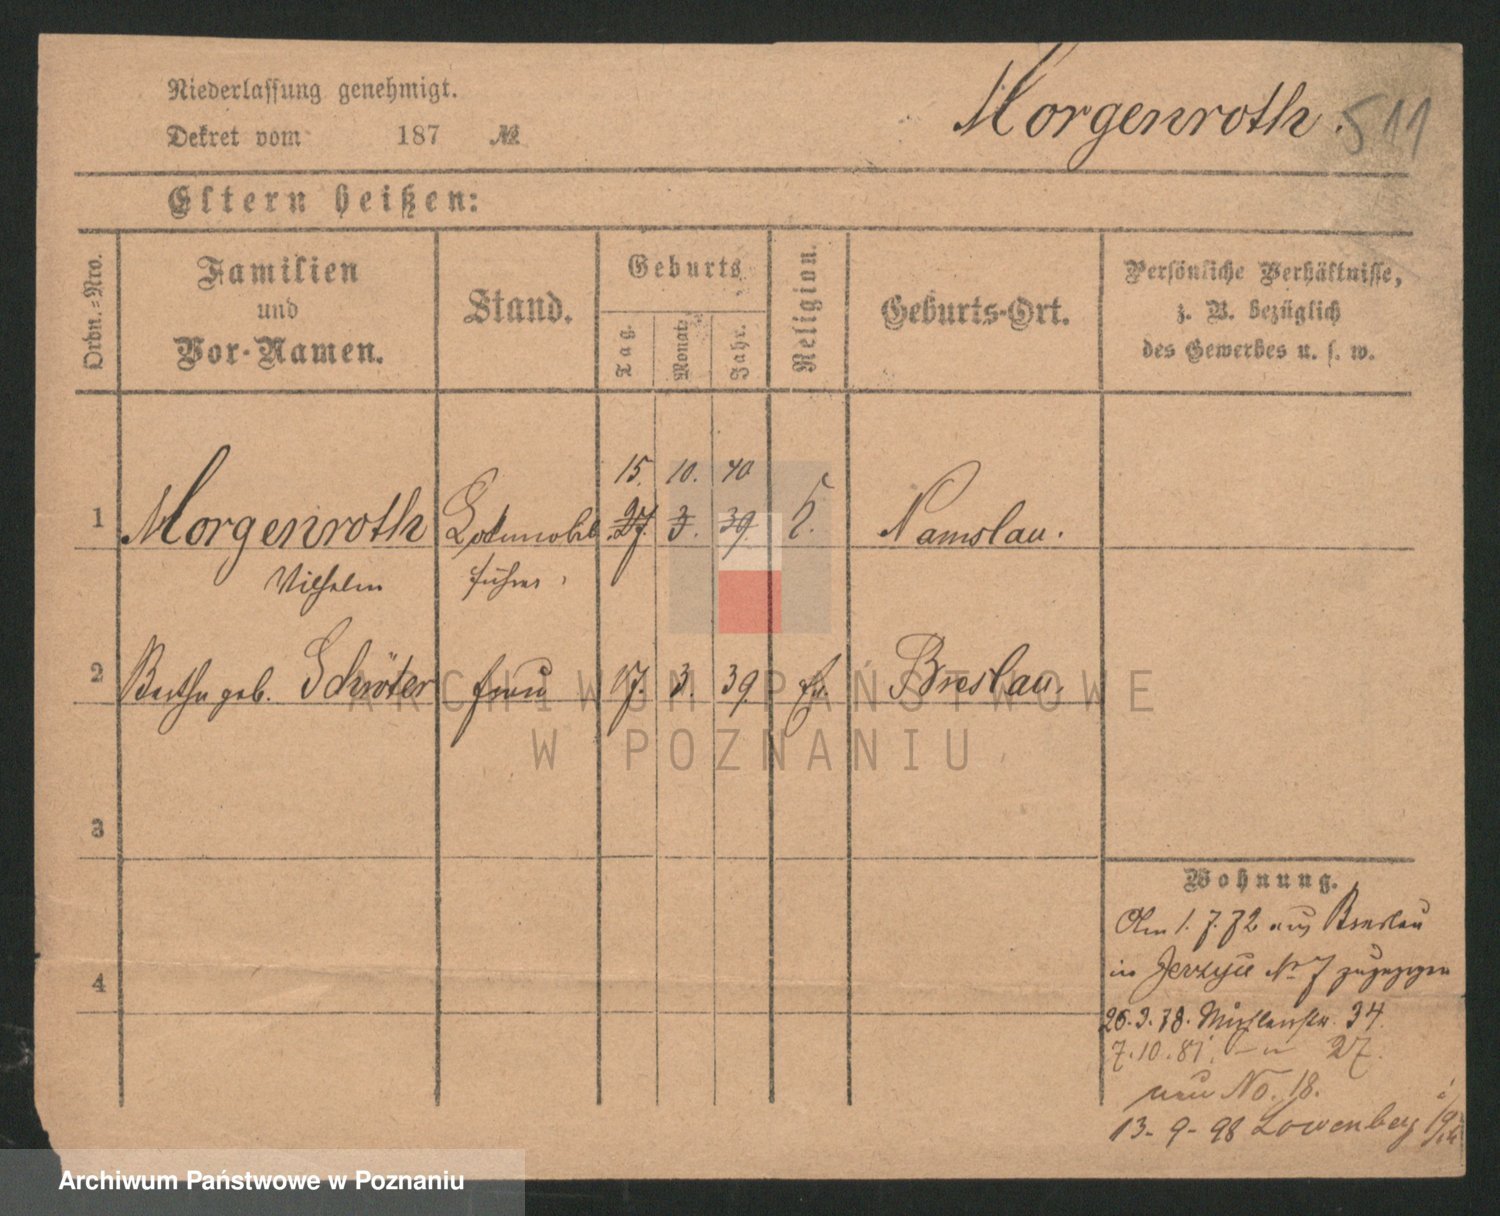 Niederlassung genehmigt.
Dekret vom 187 №
Morgenroth. 511
Eltern heißen:
Ordn.-Nro.
Familien
und
Vor-Namen.
Stand.
Geburts
Tag.
Monat.
Jahr.
Religion.
Geburts-Ort.
Persönliche Verhältnisse,
z. B. bezüglich
des Gewerbes u. s. w.
15. 10. 40
1 Morgenroth 27. 3. 39. Namslau.
Wilhelm führer
2 Bertha geb. Schröter frau 17. 3. 39. Ev. Breslau.
3
4
Wohnung.
Am 1. 7. 72 aus Breslau
in Jerzyce № 7 zugezogen
26. 3. 78. 34.
7. 10. 81. — " 27.
neu No. 18.
13 - 9 - 98 Lowenberg
ARCHIWUM PAŃSTWOWE
W POZNANIU
Archiwum Państwowe w Poznaniu